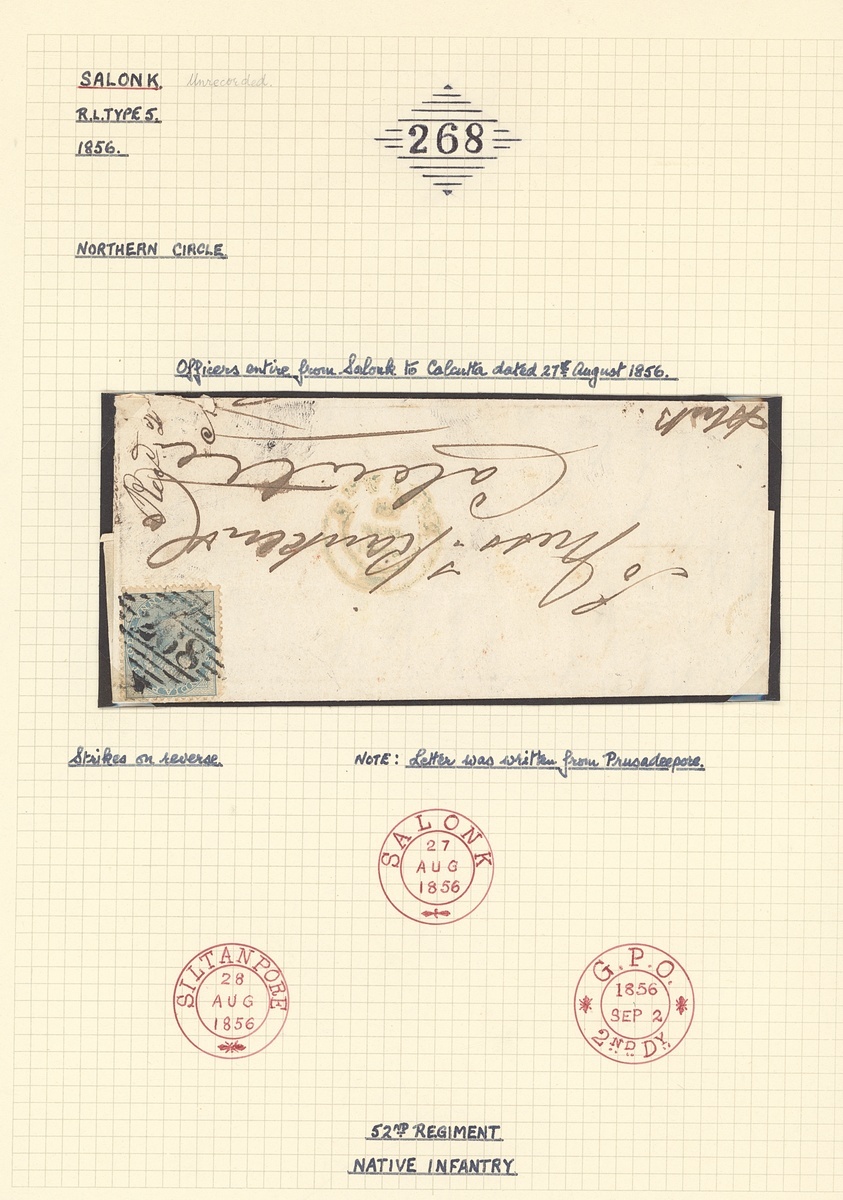 SALONK. Unrecorded.
R.L.TYPE 5.
1856.
268
NORTHERN CIRCLE.
Officers entire from Salonk to Calcutta dated 27th August 1856.
Calcutta
To
268
Strikes on reverse.
NOTE: Letter was written from Prusadeepore.
SALONK
27
AUG
1856
SILTANPORE
28
AUG
1856
G.P.O.
1856
SEP 2
2ND DY.
52ND REGIMENT
NATIVE INFANTRY